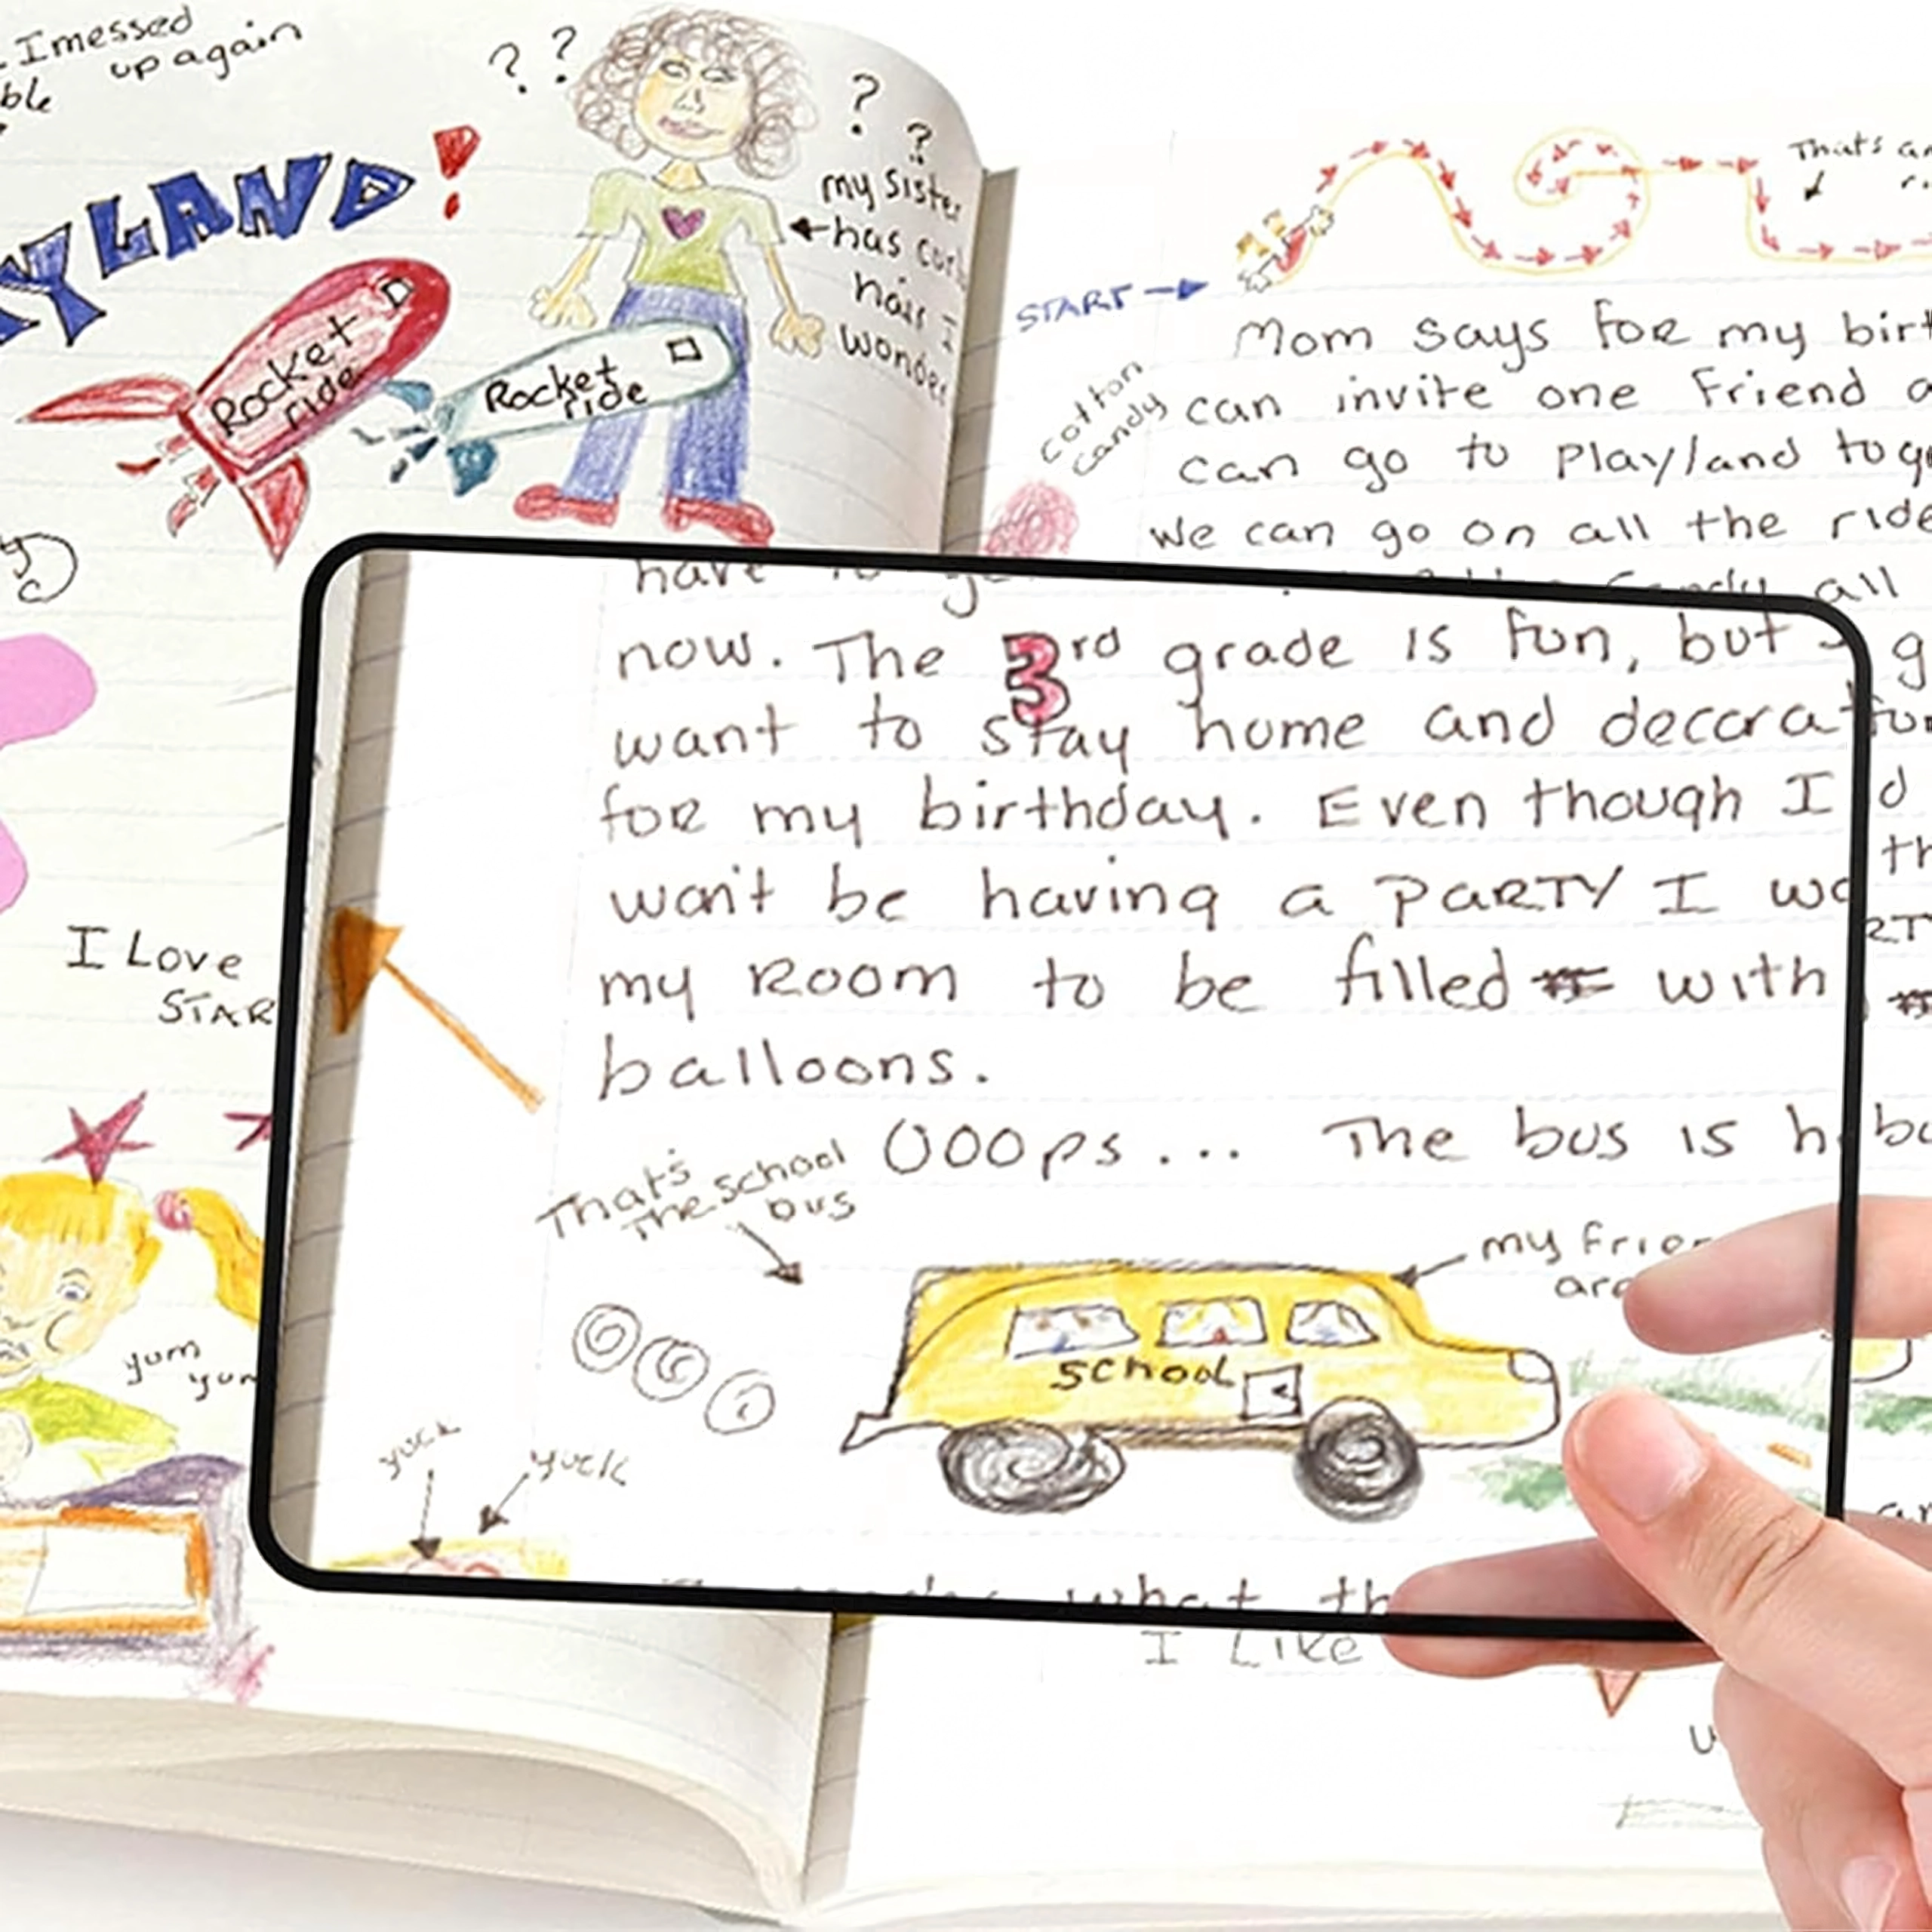 I messed
up again
ble
YLAND!
? ?
? ?
my Sister
has
hair I
wonder
Rocket
ride
Rocket
ride
I Love
STAR
yum
yum
That's
START
Mom says for my birt
can invite one Friend
can go to Playland tog
We can go on all the ride
Cotton
Candy
all
have to
now. The 3rd grade is fun, but
want to stay home and decorat
for my birthday. Even though I
won't be having a PARTY I wo
my Room to be filled with
balloons.
OOOps... The bus is h
That's
the school
bus
my frien
are
school
yuck
yuck
what th
I Like